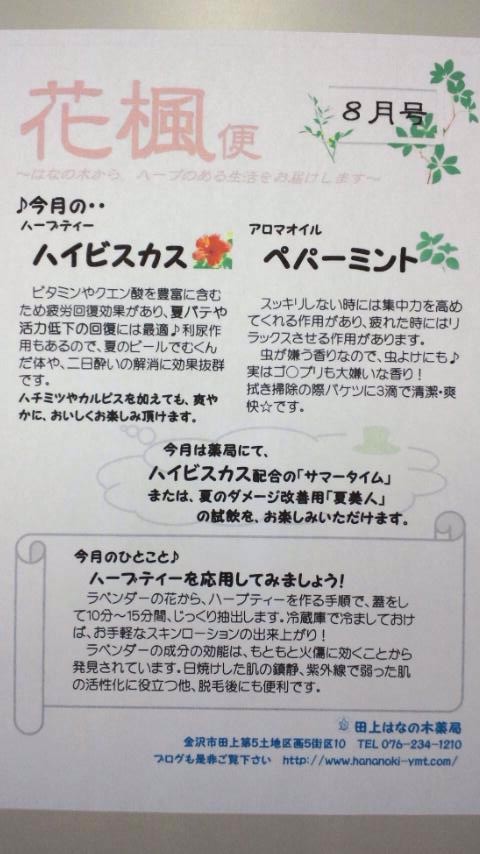 花楓便
8月号
～はなの木から、ハーブのある生活をお届けします～
♪今月の・・
ハーブティー
ハイビスカス
ビタミンやクエン酸を豊富に含む
ため疲労回復効果があり、夏バテや
活力低下の回復には最適♪利尿作
用もあるので、夏のビールでむくん
だ体や、二日酔いの解消に効果抜群
です。
ハチミツやカルピスを加えても、爽や
かに、おいしくお楽しみ頂けます。
アロマオイル
ペパーミント
スッキリしない時には集中力を高め
てくれる作用があり、疲れた時にはリ
ラックスさせる作用があります。
虫が嫌う香りなので、虫よけにも♪
実はゴ〇ブリも大嫌いな香り！
拭き掃除の際バケツに3滴で清潔・爽
快☆です。
今月は薬局にて、
ハイビスカス配合の「サマータイム」
または、夏のダメージ改善用「夏美人」
の試飲を、お楽しみいただけます。
今月のひとこと♪
ハーブティーを応用してみましょう！
ラベンダーの花から、ハーブティーを作る手順で、蓋をし
て10分～15分間、じっくり抽出します。冷蔵庫で冷ましておけ
ば、お手軽なスキンローションの出来上がり！
ラベンダーの成分の効能は、もともと火傷に効くことから
発見されています。日焼けした肌の鎮静、紫外線で弱った肌
の活性化に役立つ他、脱毛後にも便利です。
田上はなの木薬局
金沢市田上第5土地区画5街区10 TEL 076-234-1210
ブログも是非ご覧下さい http://www.hananoki-ymt.com/